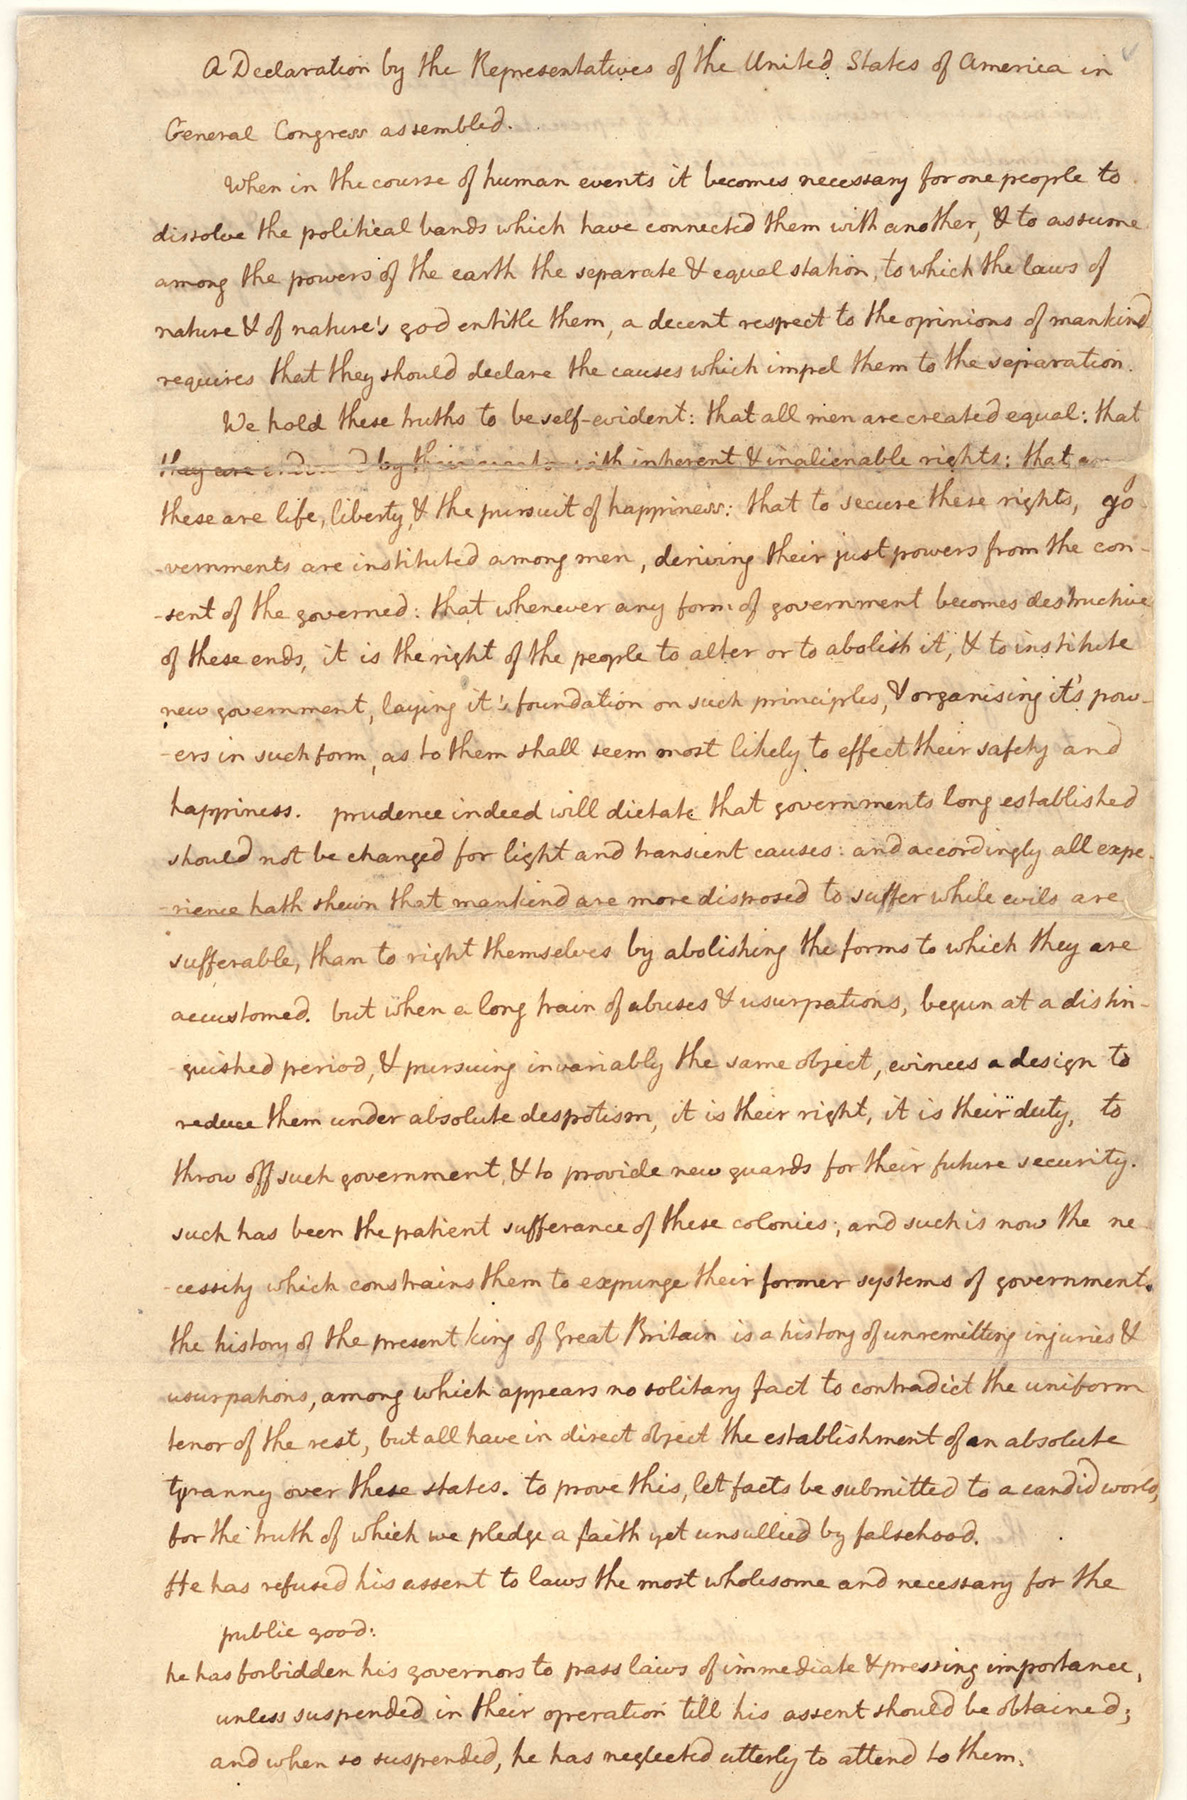 A Declaration by the Representatives of the United States of America in
General Congress assembled.
When in the course of human events it becomes necessary for one people to
dissolve the political bands which have connected them with another, & to assume
among the powers of the earth the separate & equal station, to which the laws of
nature & of nature's god entitle them, a decent respect to the opinions of mankind
requires that they should declare the causes which impel them to the separation.
We hold these truths to be self-evident: that all men are created equal: that
they are endowed by their creator with inherent & inalienable rights: that
these are life, liberty, & the pursuit of happiness: that to secure these rights, go
-vernments are instituted among men, deriving their just powers from the con-
-sent of the governed: that whenever any form of government becomes destructive
of these ends, it is the right of the people to alter or to abolish it, & to institute
new government, laying it's foundation on such principles, & organising it's pow-
-ers in such form, as to them shall seem most likely to effect their safety and
happiness. prudence indeed will dictate that governments long established
should not be changed for light and transient causes: and accordingly all expe-
-rience hath shewn that mankind are more disposed to suffer while evils are
sufferable, than to right themselves by abolishing the forms to which they are
accustomed. but when a long train of abuses & usurpations, begun at a distin-
-guished period, & pursuing invariably the same object, evinces a design to
reduce them under absolute despotism, it is their right, it is their duty, to
throw off such government, & to provide new guards for their future security.
such has been the patient sufferance of these colonies; and such is now the ne
-cessity which constrains them to expunge their former systems of government.
the history of the present king of Great Britain is a history of unremitting injuries &
usurpations, among which appears no solitary fact to contradict the uniform
tenor of the rest, but all have in direct object the establishment of an absolute
tyranny over these states. to prove this, let facts be submitted to a candid world,
for the truth of which we pledge a faith yet unsullied by falsehood.
He has refused his assent to laws the most wholesome and necessary for the
public good:
he has forbidden his governors to pass laws of immediate & pressing importance,
unless suspended in their operation till his assent should be obtained;
and when so suspended, he has neglected utterly to attend to them.